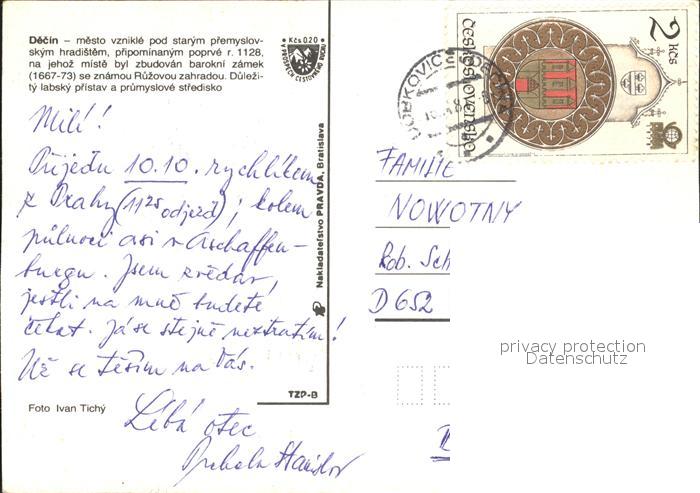 Děčín – město vzniklé pod starým přemyslov-
ským hradištěm, připomínaným poprvé r. 1128,
na jehož místě byl zbudován barokní zámek
(1667-73) se známou Růžovou zahradou. Důleži-
tý labský přístav a průmyslové středisko
Kčs 0,20
Milí!
Přijedu 10.10. rychlíkem
z Prahy (11²⁵ odjezd); kolem
půlnoci asi v Aschaffen-
burgu. Jsem zvědav,
jestli na mně budete
čekat. Já se stejně neztratím!
Už se těším na Vás.
Líbá otec
Stanislav
Foto Ivan Tichý
Nakladateľstvo PRAVDA, Bratislava
TZP-B
2 Kčs
Československo
FAMILIE
NOWOTNY
Rob. Sch
D 652
privacy protection
Datenschutz